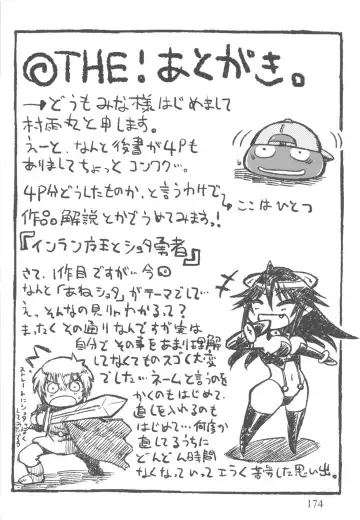 @THE!あとがき。
→どうもみな様はじめまして
村雨丸と申します。
えーと、なんと後書が4Pも
ありましてちょっとコンワク…。
4P分どうしたものか、と言うわけで
→ここはひとつ
作品解説とかでうめてみますっ!
『インラン女王とショタ勇者』
さて、1作目ですが…今回
なんと「あねショタ」がテーマでして…
え、そんなの見りゃわかるって?
まったくその通りなんですが実は
自分でその事をあまり理解
してなくてものスゴく大変
でした…ネームと言うのを
かくのもはじめて、
直しを入れるのも
はじめて…何度か
直してるうちに
どんどん時間
なくなっていってエラく苦労した思い出。
ストレートにショタっぽく
174